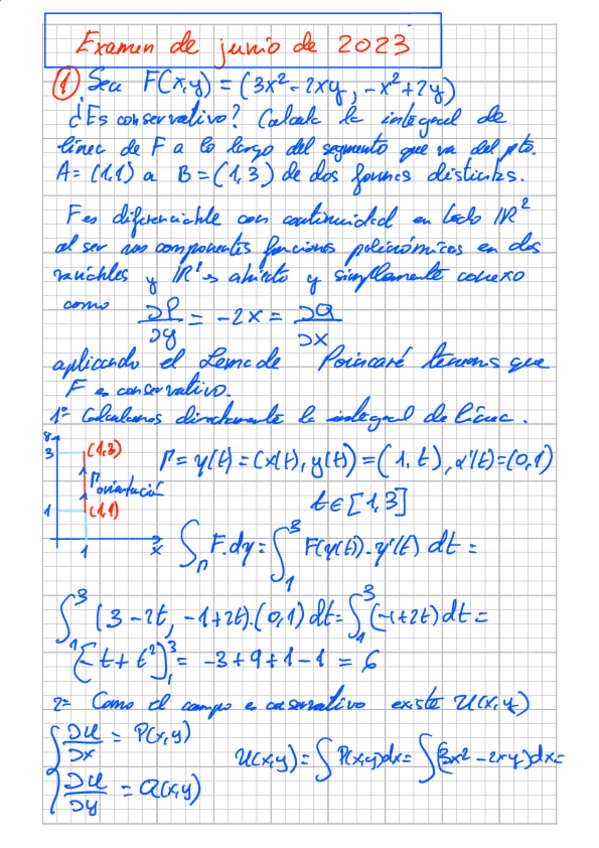 Examen de junio de 2023
① Sea F(x,y) = (3x² - 2xy, -x² + 2y)
¿Es conservativo? Calcula la integral de
línea de F a lo largo del segmento que va del pto.
A = (1,1) a B = (1,3) de dos formas distintas.
F es diferenciable con continuidad en todo ℝ²
al ser sus componentes funciones polinómicas en dos
variables y ℝ² es abierto y simplemente conexo
como ∂P/∂y = -2x = ∂Q/∂x
aplicando el Lema de Poincaré tenemos que
F es conservativo.
1º Calculamos directamente la integral de línea.
8
3
(1,3)
Γ orientación
1
(1,1)
1
x
Γ = γ(t) = (x(t), y(t)) = (1, t), α'(t) = (0,1)
t ∈ [1,3]
∫_Γ F·dγ = ∫₁³ F(γ(t))·γ'(t) dt =
∫₁³ (3-2t, -1+2t)·(0,1) dt = ∫₁³ (-1+2t) dt =
[-t + t²]₁³ = -3+9+1-1 = 6
2º Como el campo es conservativo existe U(x,y)
{ ∂U/∂x = P(x,y)
∂U/∂y = Q(x,y)
U(x,y) = ∫ P(x,y)dx = ∫ (3x² - 2xy)dx =